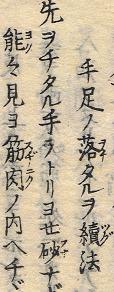 手足ノ落タルヲ續法
先ヲチタル手ヲトリヨセ砂ナド
能々見ヨ筋肉ノ内ヘチヂ